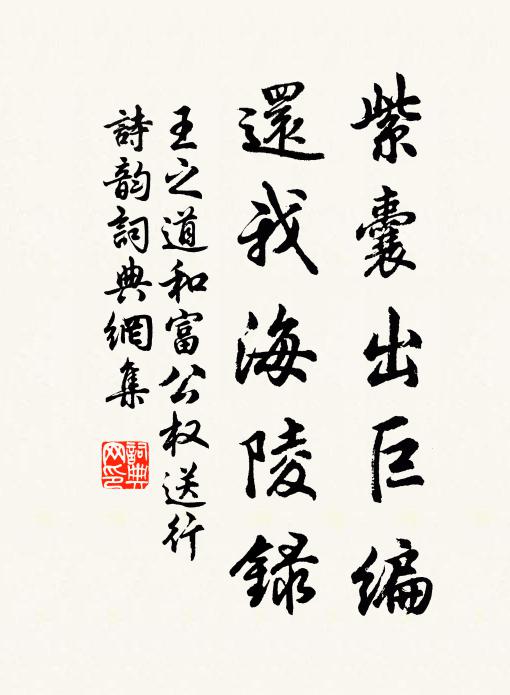 紫囊出巨编
還我海陵録
王之道和富公权送行
詩韵詞典網集
詞典网印